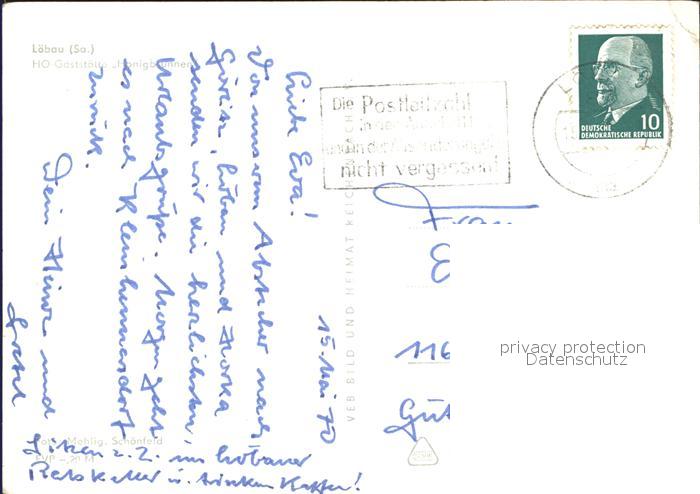 Löbau (Sa.)
HO Gaststätte „Honigbrunnen"
15. Mai 70
Liebe Eva!
Von unserem Abstecher nach
Görlitz, Löbau und Horka
senden wir die herzlichsten
Urlaubsgrüße. Morgen geht
es nach Kleinhennersdorf
zurück.
Dein Heinz und
Gretel
Sitzen z. Z. im Löbauer
Ratskeller u. trinken Kaffee!
Mehlig, Schönfeld
VEB BILD UND HEIMAT REICHENBACH
Die Postleitzahl
nicht vergessen!
10
DEUTSCHE
DEMOKRATISCHE REPUBLIK
Frau
E
116
Gut
privacy protection
Datenschutz